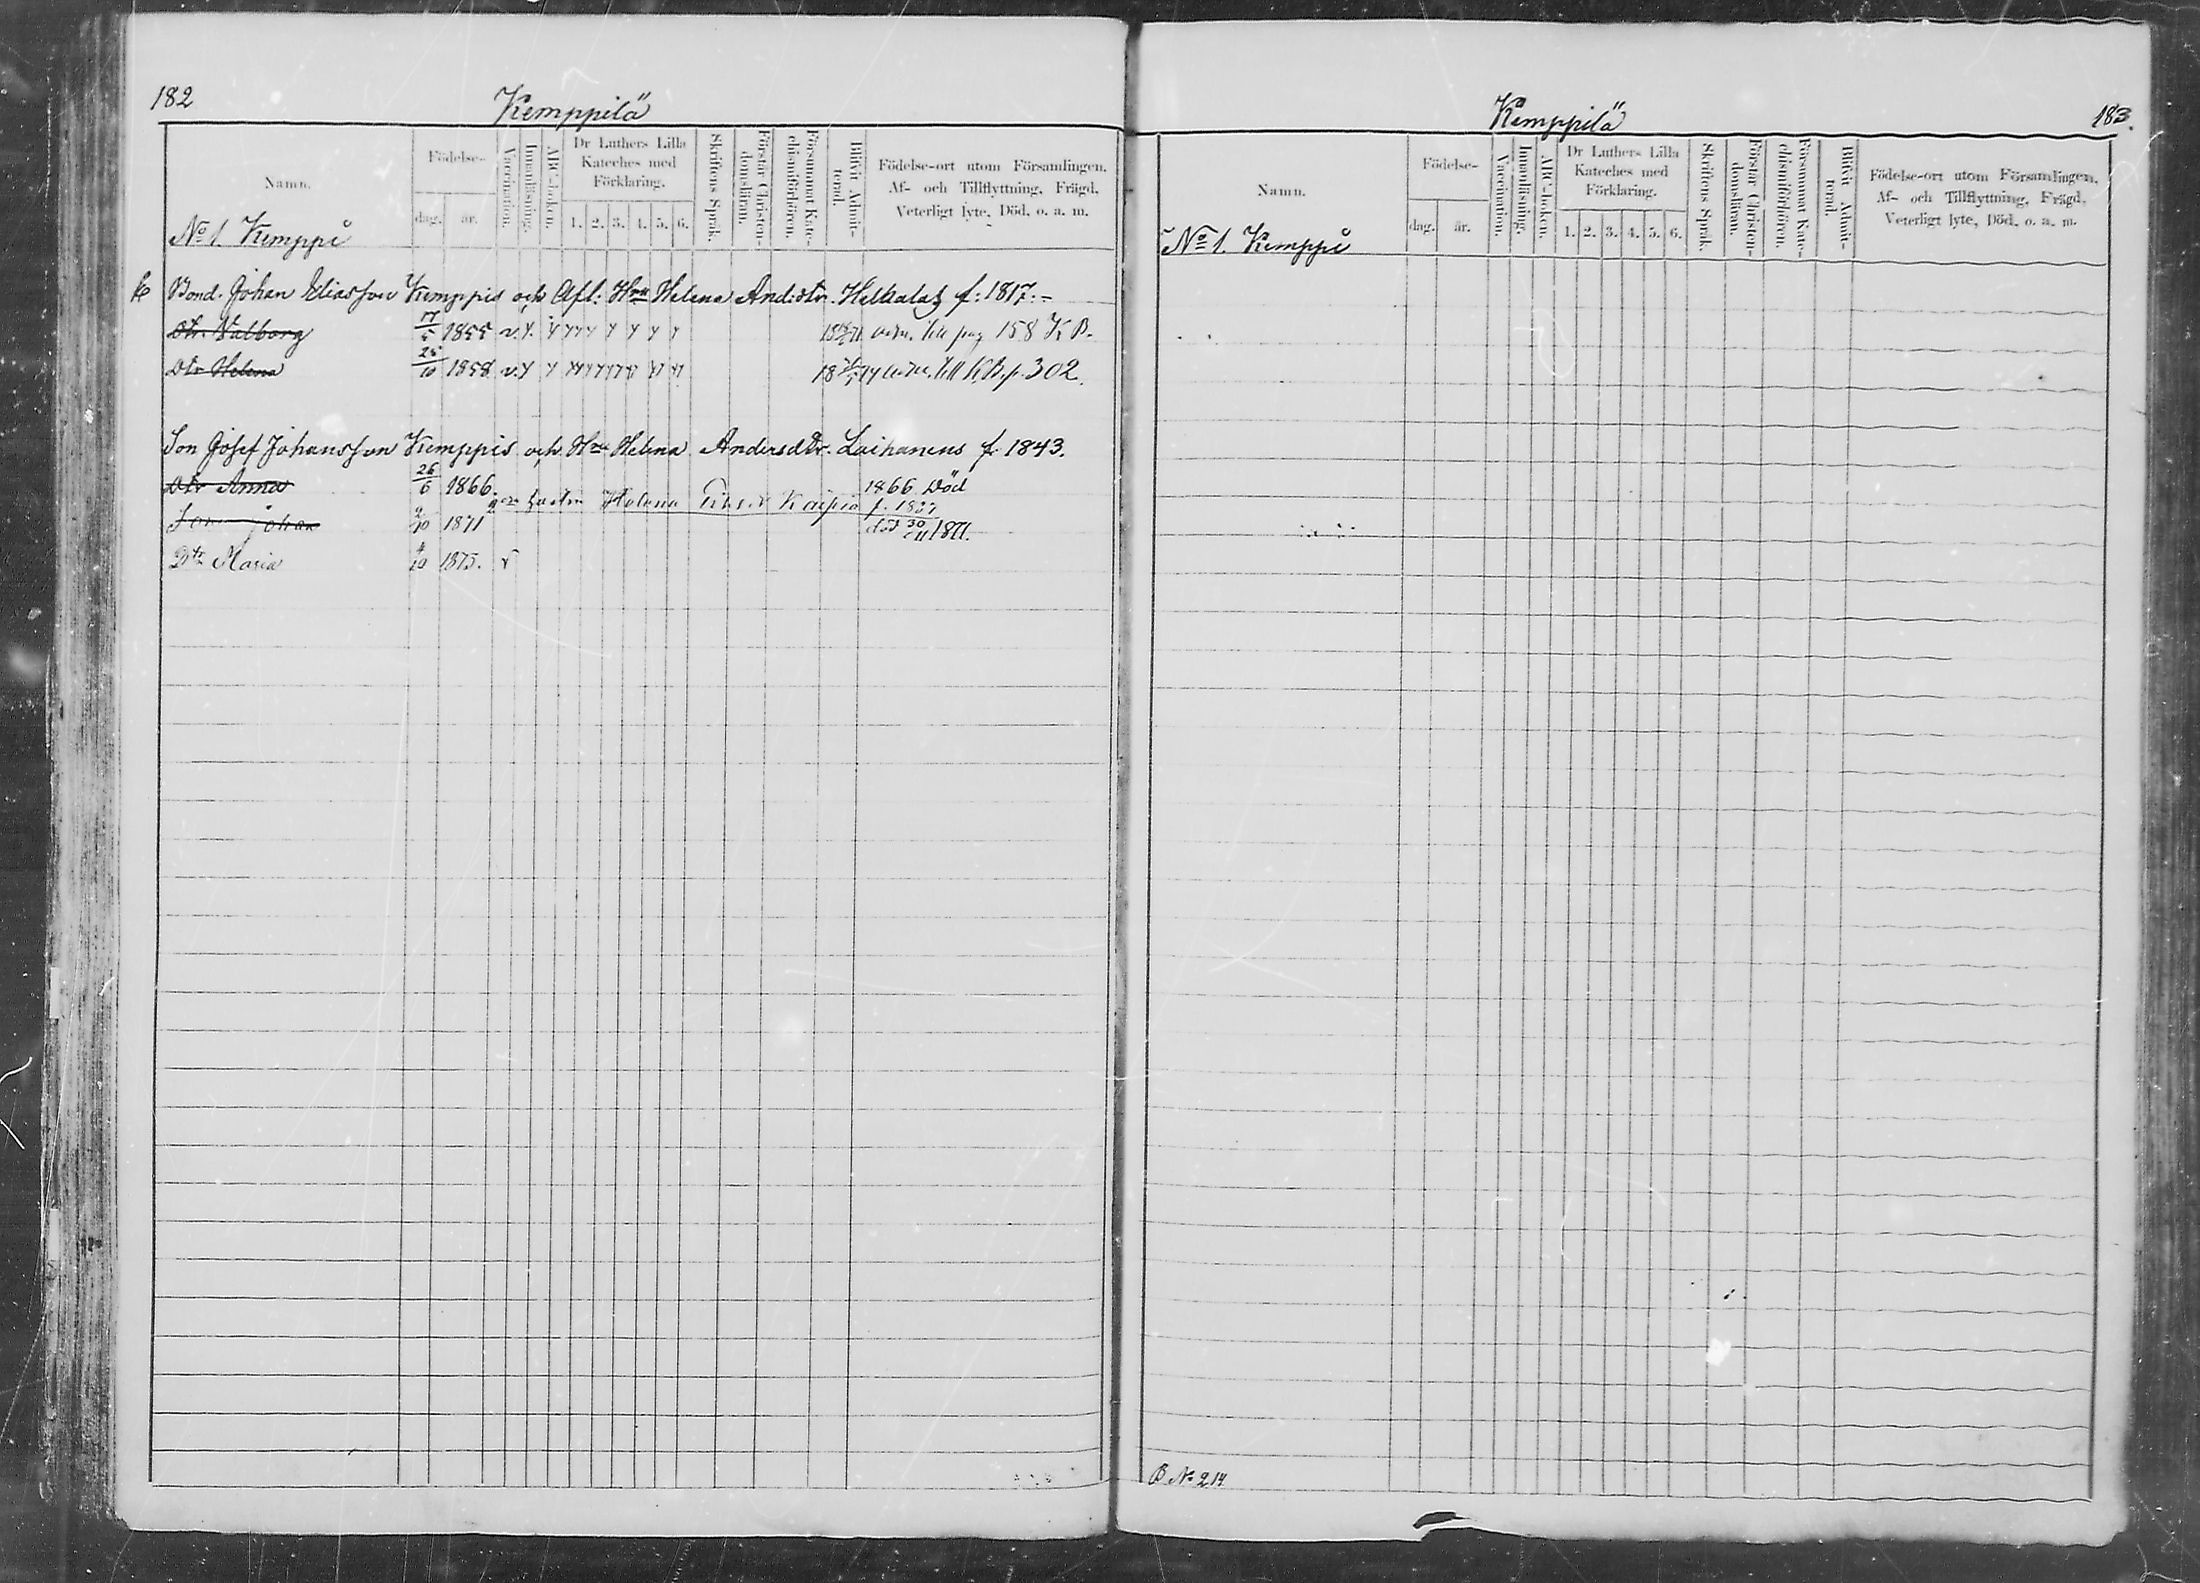 182
Kemppilä
Namn.
Födelse-
dag. år.
Vaccination.
Innanläsning.
ABC-boken.
Dr Luthers Lilla
Kateches med
Förklaring.
1. 2. 3. 4. 5. 6.
Skriftens Språk.
Förstår Christen-
domsläran.
Försummat Kate-
chismiförhören.
Blifvit Admit-
terad.
Födelse-ort utom Församlingen,
Af- och Tillflyttning, Frägd,
Veterligt lyte, Död, o. a. m.
No 1. Kemppi
Bond. Johan Eliasson Kemppis och Afl: Hru Helena And:dtr. Helkalas f: 1817.-
Dtr. Valborg 17/5 1855 v. till pag 158 K B.
Dtr Helena 25/10 1858 v. till K.B. p. 302.
Son Josef Johansson Kemppis och Hru Helena Andersdtr. Laihanens f 1843.
Dtr Anna 26/6 1866. 1866 Död
2dra hustru Helena Kaipia f. 1837
Son Johan 2/10 1871 död 30/11 1871.
Dtr Maria 4/10 1875. v
Kemppilä
183.
Namn.
Födelse-
dag. år.
Vaccination.
Innanläsning.
ABC-boken.
Dr Luthers Lilla
Kateches med
Förklaring.
1. 2. 3. 4. 5. 6.
Skriftens Språk.
Förstår Christen-
domsläran.
Försummat Kate-
chismiförhören.
Blifvit Admit-
terad.
Födelse-ort utom Församlingen,
Af- och Tillflyttning, Frägd,
Veterligt lyte, Död, o. a. m.
No 1. Kemppi
B No 214